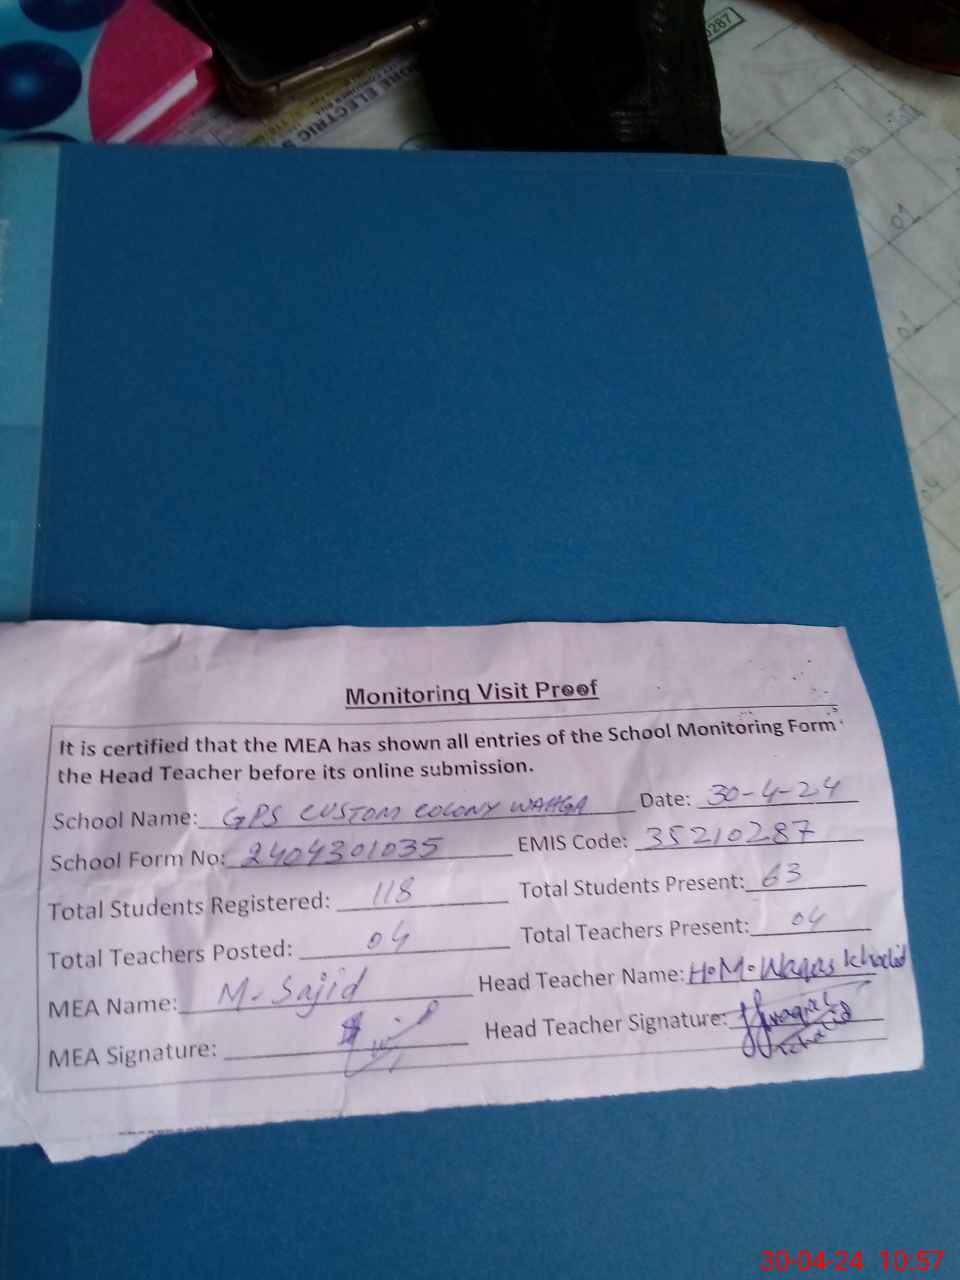 0287
ORE ELECTRIC
Monitoring Visit Proof
It is certified that the MEA has shown all entries of the School Monitoring Form
the Head Teacher before its online submission.
School Name: GPS CUSTOM COLONY WAHGA Date: 30-4-24
School Form No: 2404301035 EMIS Code: 35210287
Total Students Registered: 118 Total Students Present: 63
Total Teachers Posted: 04 Total Teachers Present: 04
MEA Name: M. Sajid Head Teacher Name: H.M. Waqas Khalid
MEA Signature: Head Teacher Signature: Waqas Khalid
30-04-24 10:57